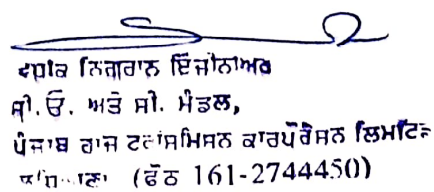 ਵਧੀਕ ਨਿਗਰਾਨ ਇੰਜੀਨੀਅਰ
ਸੀ.ਓ. ਅਤੇ ਸੀ. ਮੰਡਲ,
ਪੰਜਾਬ ਰਾਜ ਟਰਾਂਸਮਿਸਨ ਕਾਰਪੋਰੈਸਨ ਲਿਮਟਿਡ
(ਫੋਨ 161-2744450)